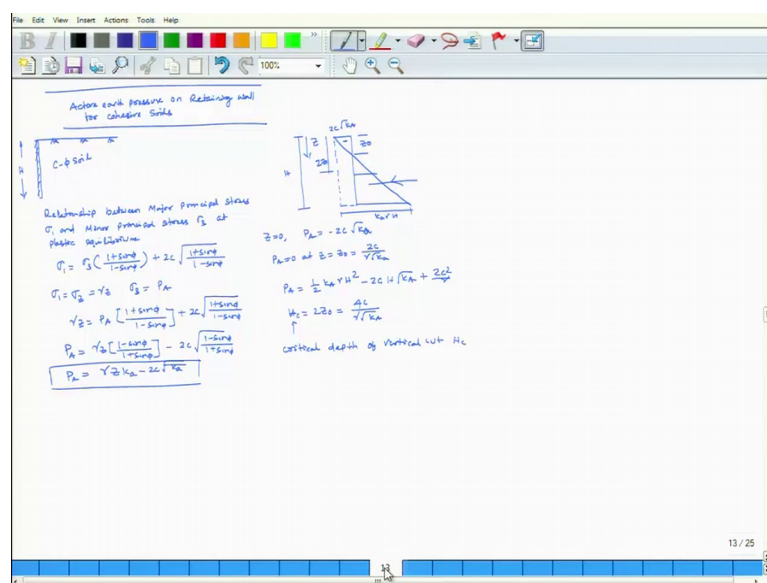 File Edit View Insert Actions Tools Help
B I
100%
Active earth pressure on Retaining wall
for cohesive soils
H
C-ϕ soil
Relationship between Major principal stress
σ1 and Minor principal stress σ3 at
plastic equilibrium
σ1 = σ3 (1+sinϕ / 1-sinϕ) + 2c √(1+sinϕ / 1-sinϕ)
σ1 = σz = γz σ3 = PA
γz = PA [1+sinϕ / 1-sinϕ] + 2c √(1+sinϕ / 1-sinϕ)
PA = γz [1-sinϕ / 1+sinϕ] - 2c √(1-sinϕ / 1+sinϕ)
PA = γ z ka - 2c √ka
2c √kA
H
z
2z0
-
z0
ka γ H
z=0, PA = -2c √ka
PA=0 at z = z0 = 2c / γ√ka
PA = 1/2 kA γ H² - 2c H √kA + 2c²/γ
Hc = 2z0 = 4c / γ√kA
critical depth of vertical cut Hc
13 / 25
13